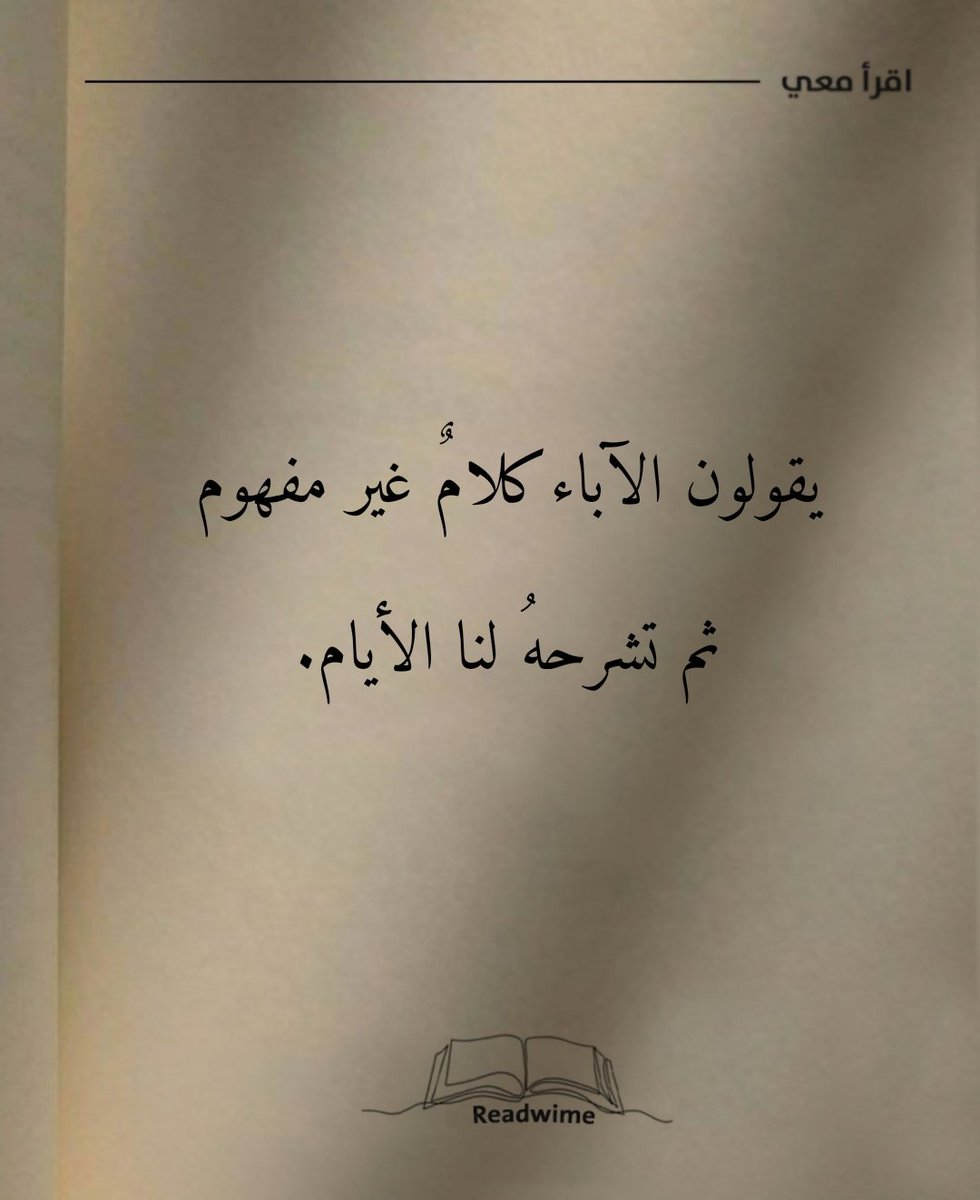 اقرأ معي
يقولون الآباء كلامٌ غير مفهوم
ثم تشرحهُ لنا الأيام.
Readwime